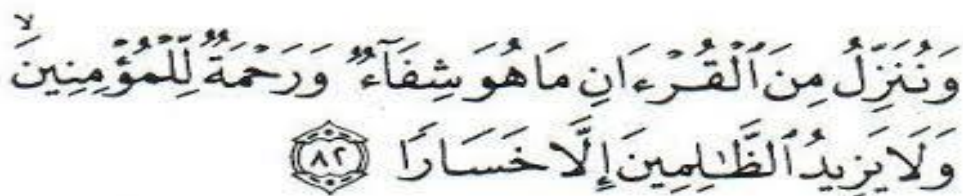 وَنُنَزِّلُ مِنَ ٱلْقُرْءَانِ مَا هُوَ شِفَآءٌ وَرَحْمَةٌ لِّلْمُؤْمِنِينَ ۙ
وَلَا يَزِيدُ ٱلظَّٰلِمِينَ إِلَّا خَسَارًا ٨٢